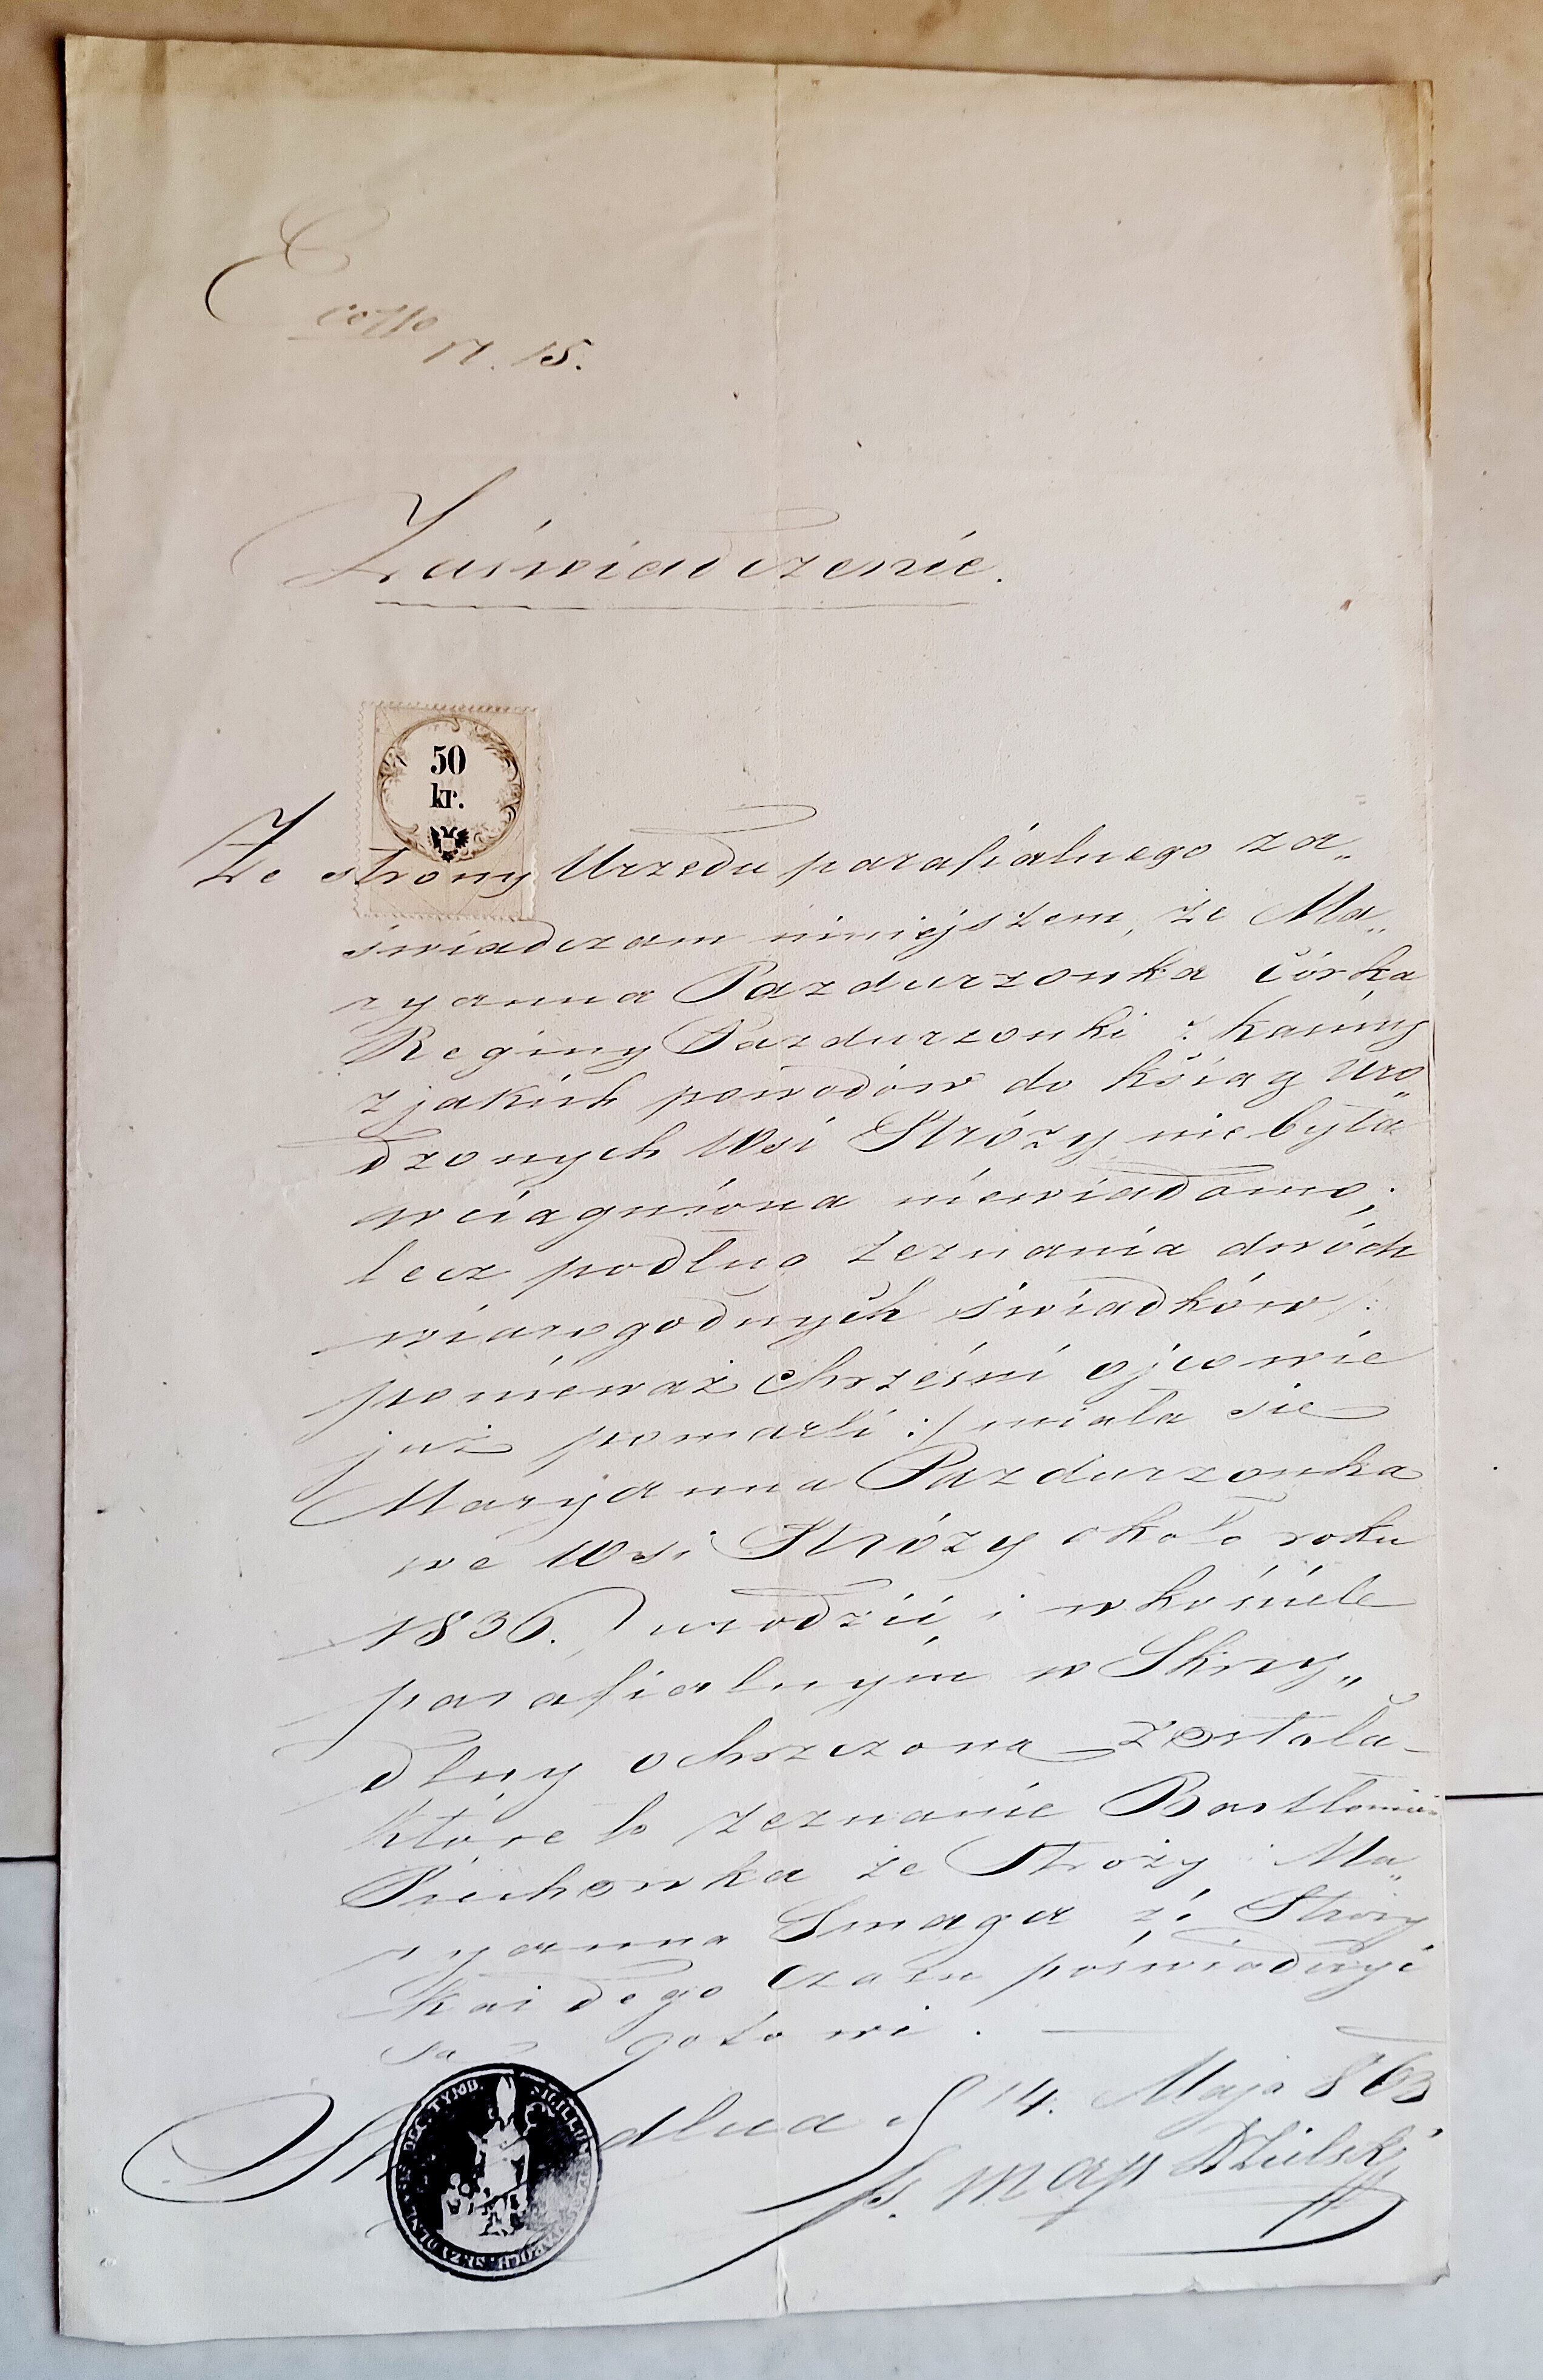 N. 15.
Zaświadczenie.
50
kr.
Ze strony Urzędu parafialnego za„
świadczam niniejszem, że Ma„
ryanna Pazdurzonka Córka
Reginy Pazdurzonki z Kasiny
z jakich powodów do Ksiąg Uro„
dzonych Wsi Stróży nie była
wciągniona niewiadomo;
lecz podług zeznania dwóch
wiarogodnych świadków /:
ponieważ chrzesni ojcowie
już pomarli :/ miała się
Maryanna Pazdurzonka
we Wsi Stróży około roku
1836. urodzić, i w kościele
parafialnym w Skrzy„
dlny ochrzczona została
które to zeznanie Bartłomiej
Piechowka ze Stróży i Ma„
ryanna Smaga ze Stróży
Każdego czasu poświadczyć
są gotowi.
dlna d 14. Maja 863
SIGILLUM
PAROCH. SKRZYDLNENSIS DEC. TYMB.